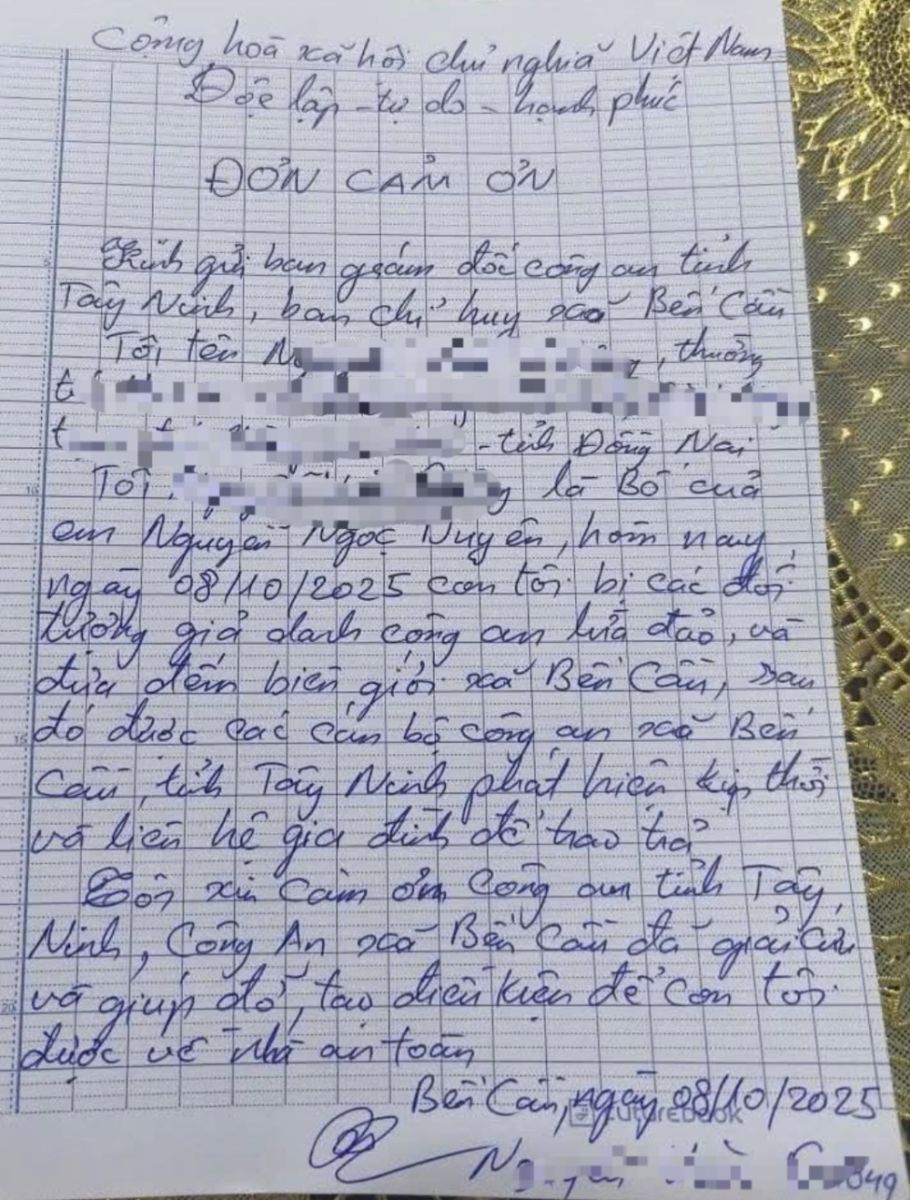 Cộng hoà xã hội chủ nghiã Việt Nam
Độc lập - tự do - hạnh phúc
ĐƠN CẢM ƠN
Kính gửi ban giám đốc công an tỉnh
Tây Ninh, ban chỉ huy xã Bến Cầu
Tôi tên, thường
- tỉnh Đồng Nai
Tôi là Bố cuả
em Nguyễn Ngọc Nuyên, hôm nay
ngày 08/10/2025 con tôi bị các đối
tượng giả danh công an lừa đảo, và
đưa đến biên giới xã Bến Cầu, sau
đó được các cán bộ công an xã Bến
Cầu, tỉnh Tây Ninh phát hiện kịp thời
và liên hệ gia đình để trao trả
Tôi xin Cảm ơn Công an tỉnh Tây
Ninh, Công An xã Bến Cầu đã giải cứu
và giúp đỡ, tạo điều kiện để con tôi
được về nhà an toàn
Bến Cầu, ngày 08/10/2025
futurebook